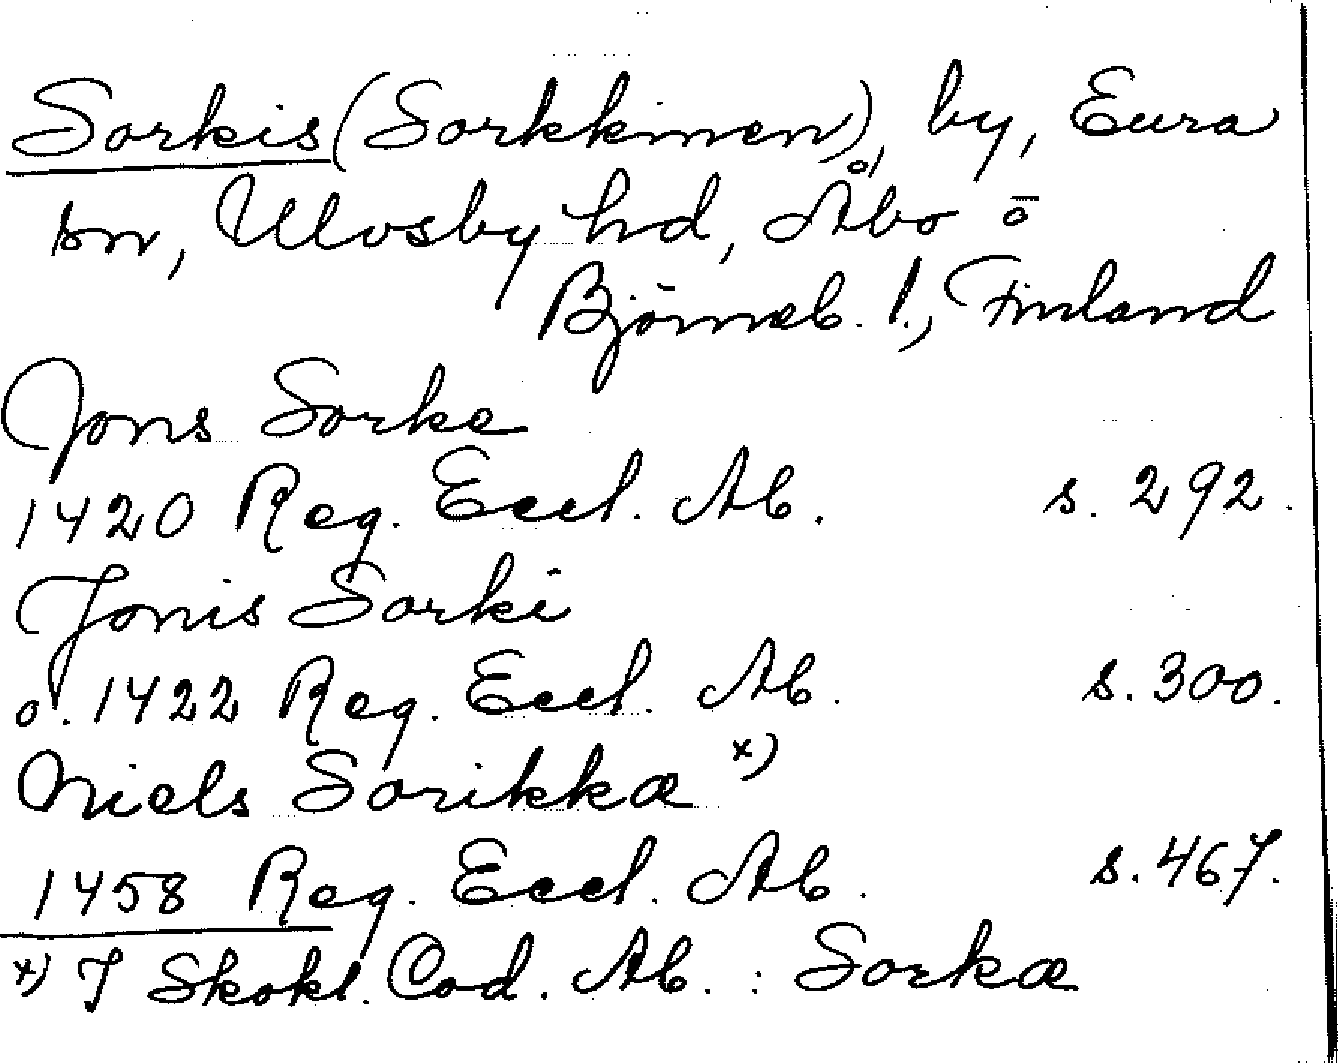 Sorkis (Sorkkinen), by, Eura
sn, Ulvsby hd, Åbo o
Björneb. l., Finland
Jons Sorke
1420 Reg. Eccl. Ab. s. 292.
Jonis Sorki
o. 1422 Reg. Eccl. Ab. s. 300.
Niels Sorikka x)
1458 Reg. Eccl. Ab. s. 467.
x) I Skokl. Cod. Ab. : Sorkæ